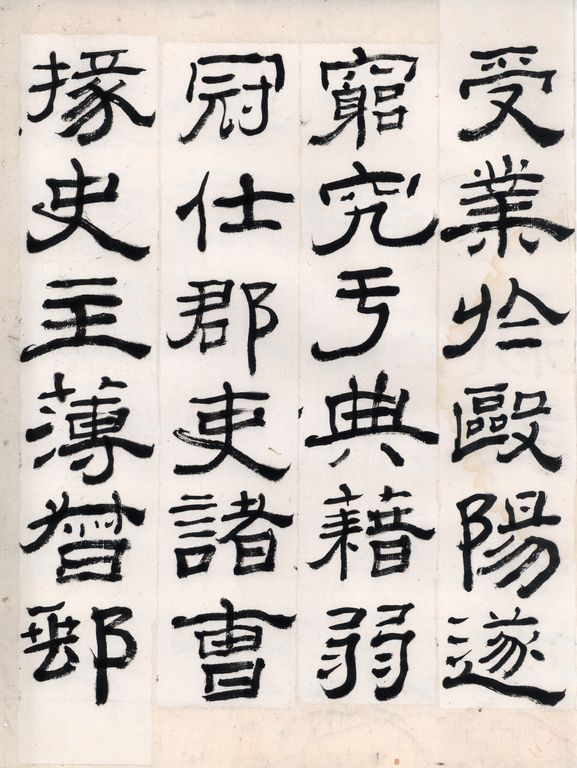 受業於毆陽遂
窮究亐典藉弱
冠仕郡吏諸曹
掾史主薄督郵